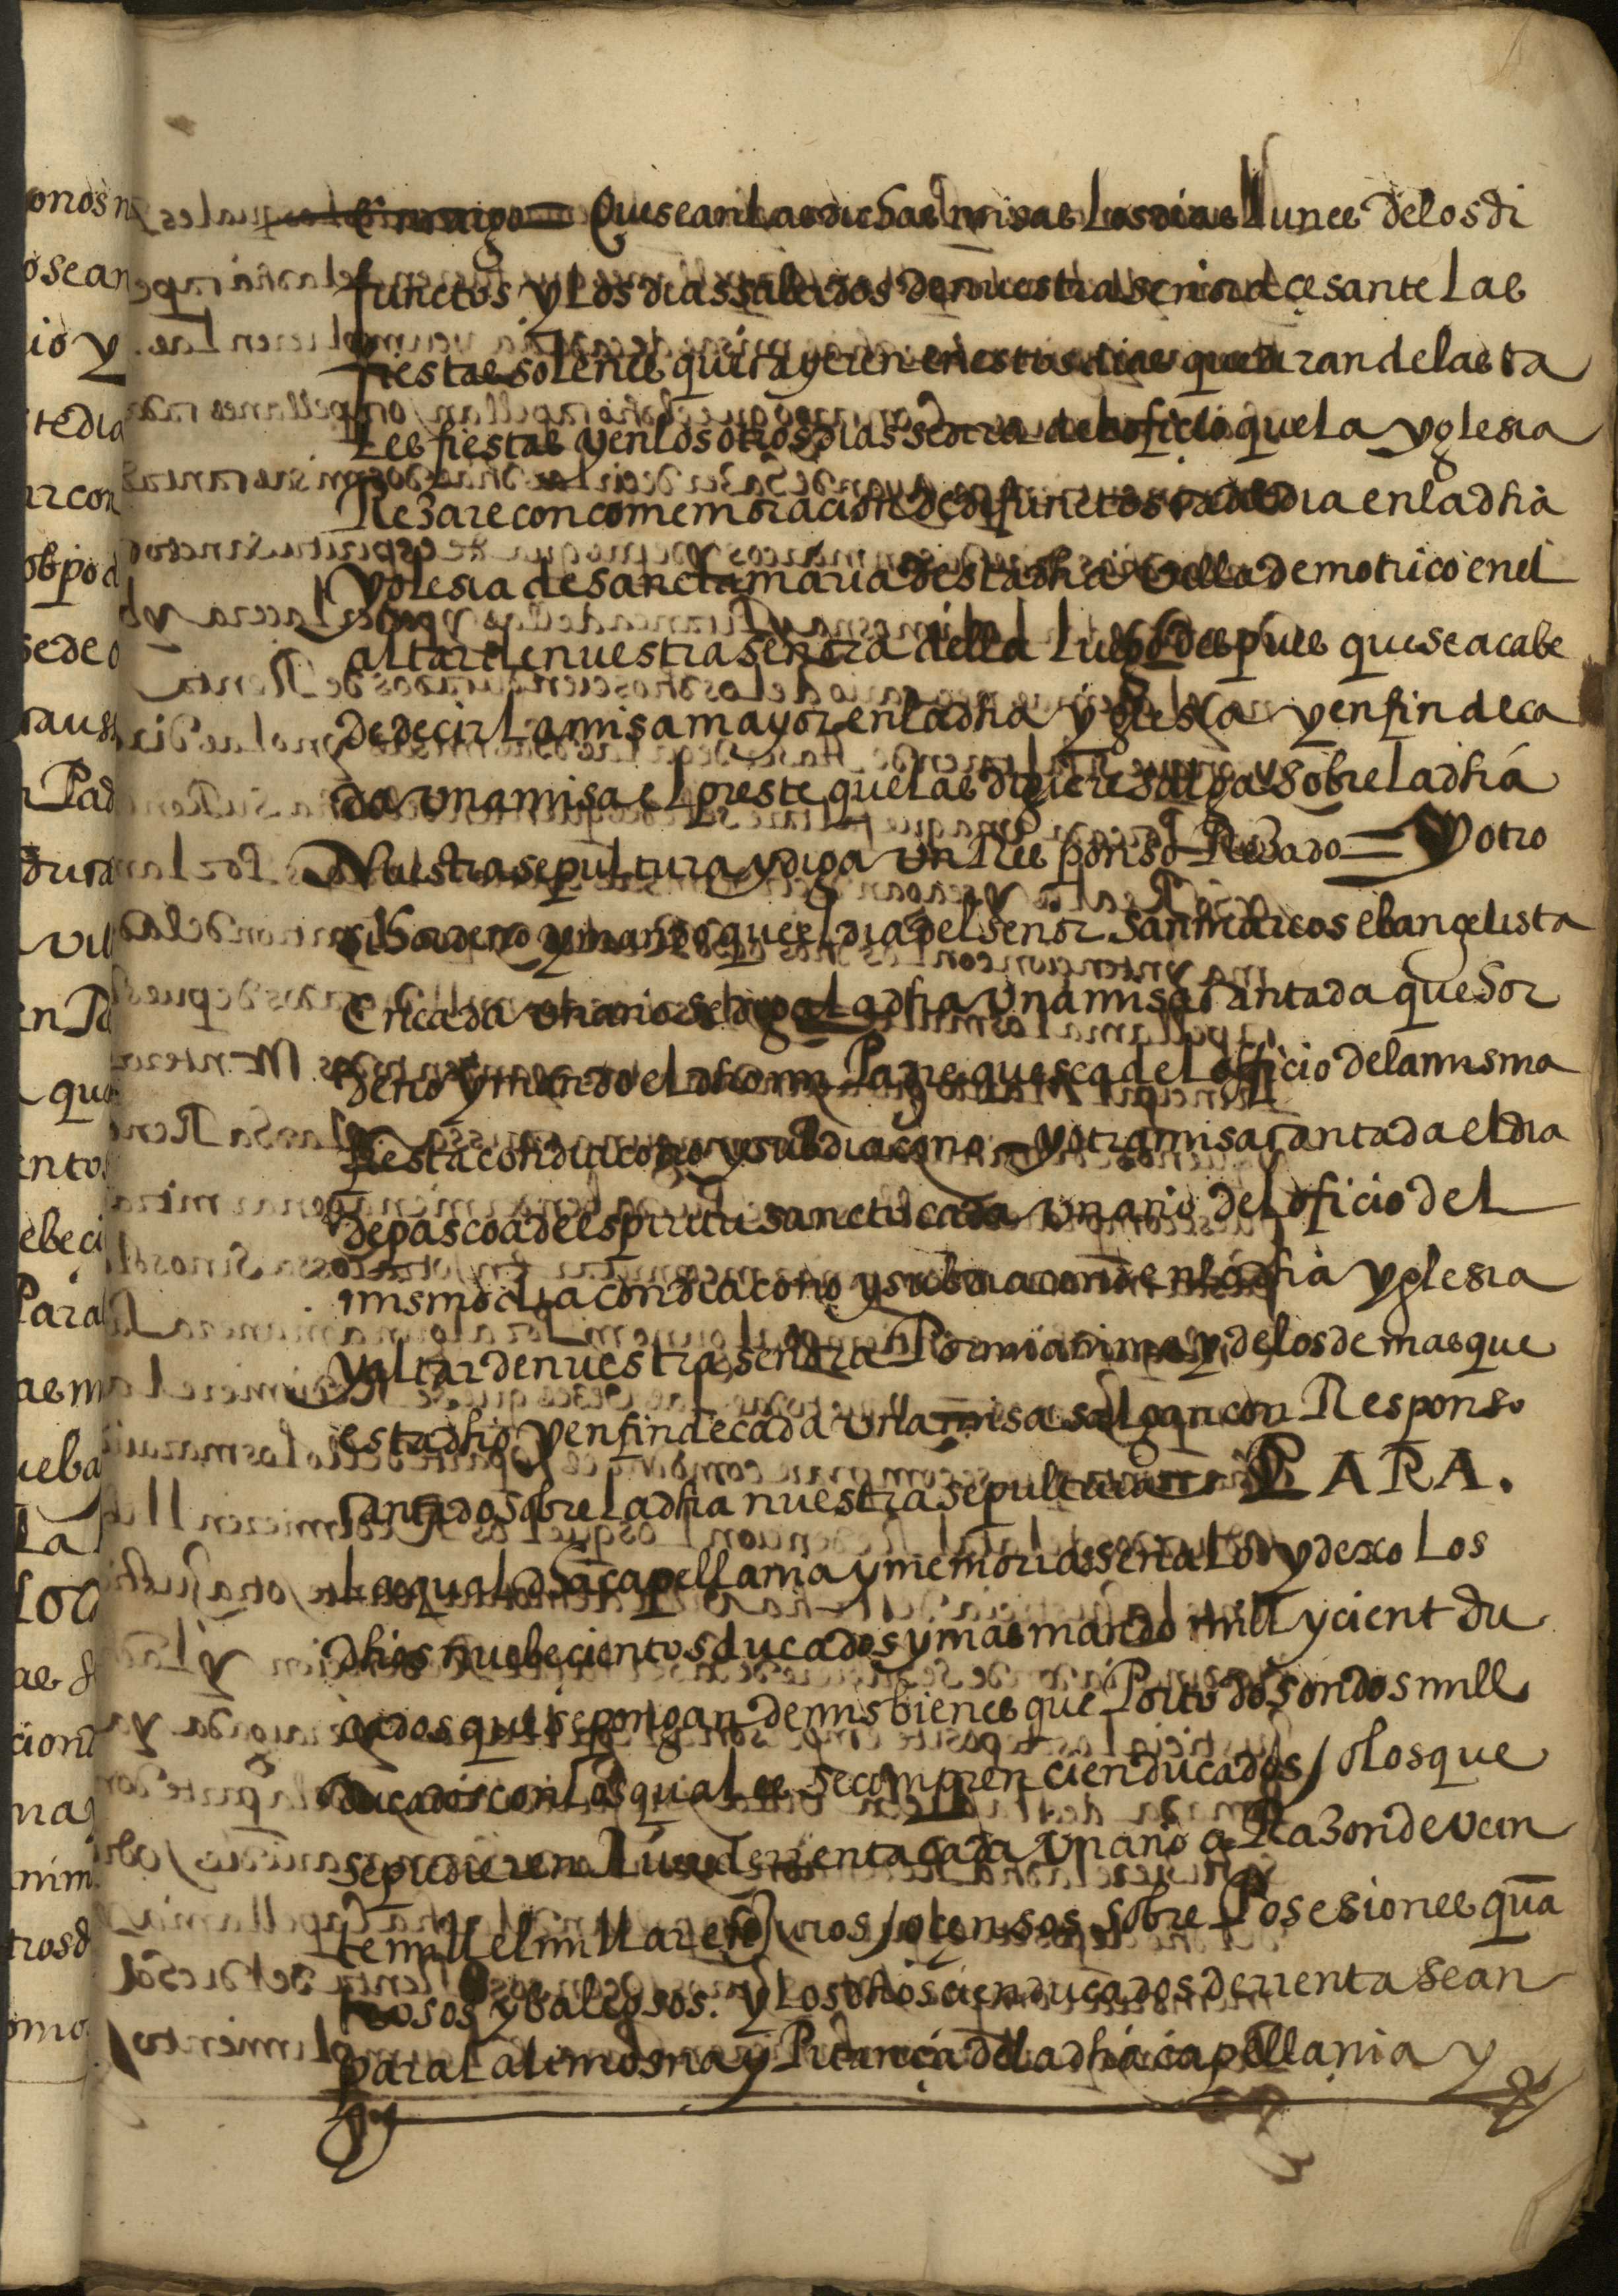 Domingo = Que sean las dichas misas los dias llunes de los di
functos y los dias sabados de nuestra señora cesante las
fiestas solenes que cayeren en estos dias que diran de las ta
les fiestas y en los otros dias se dira del oficio que la yglesia
Rezare con comemoracion de difunctos cada dia en la dha
yglesia de sancta maria desta dha villa de motrico en el
altar de nuestra señora della luego despues que se acabe
de decir la misa mayor en la dha yglesia y en fin de ca
da una misa el preste que las dixiere salga sobre la dha
Nuestra sepultura y diga un Responso Rezado = Y otro
si hordeno y mando que el dia del señor San marcos ebangelista
En cada un año se diga la dha una misa cantada que hor
deno y mando el dho mi Padre que sea del officio de la misma
fiesta con diacono y subdiacono = y otra misa cantada el dia
de pascoa de espiritu sancto cada un año del oficio del
mismo dia con diacono y subdiacono en la dha yglesia
y altar de nuestra señora Por mi anima y de los demas que
esta dho y en fin de cada una misa salgan con Responso
cantado sobre la dha nuestra sepultura = PARA.
La qual dha capellania y memorias señalo y dexo los
dhos nuebecientos ducados y mas mando mill y cient du
cados que se pongan de mis bienes que Por todo son dos mill
ducados con los quales se compren cien ducados / o los que
se pudieren de renta cada un año a Razon de vein
te mill el millar en Juros / o censos sobre Posesiones qua
tiosos y balersos. y los dhos cien ducados de rrenta sean
para la limosna y Pitancia de la dha capellania y